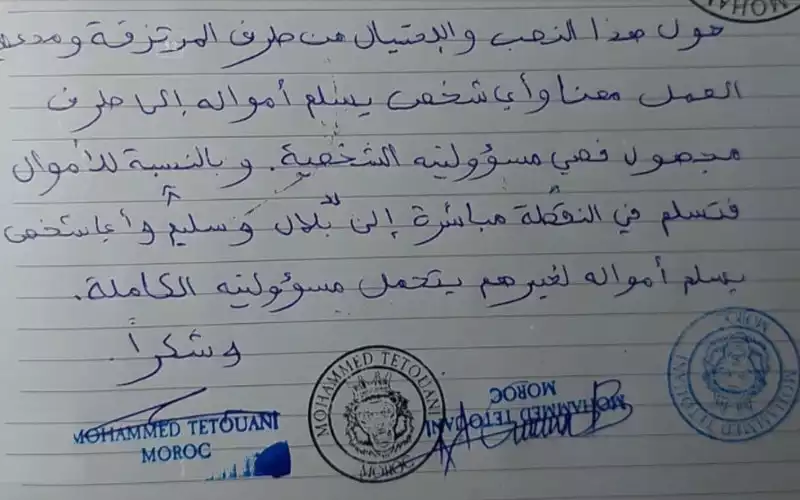 MOHA
حول هذا النصب والإحتيال من طرف المرتزقة ومدعي
العمل معنا وأي شخص يسلم أمواله إلى طرف
مجهول فهي مسؤوليته الشخصية. وبالنسبة للأموال
فتسلم في النقطة مباشرة إلى بلال وَ سليم وأي شخص
يسلم أمواله لغيرهم يتحمل مسؤوليته الكاملة.
وشكراً.
MOHAMMED TETOUANI
MOROC
MOHAMMED TETOUANI
MOROC
MOHAMMED TETOUANI
MOROC
MOHAMMED TETOUANI
MORO